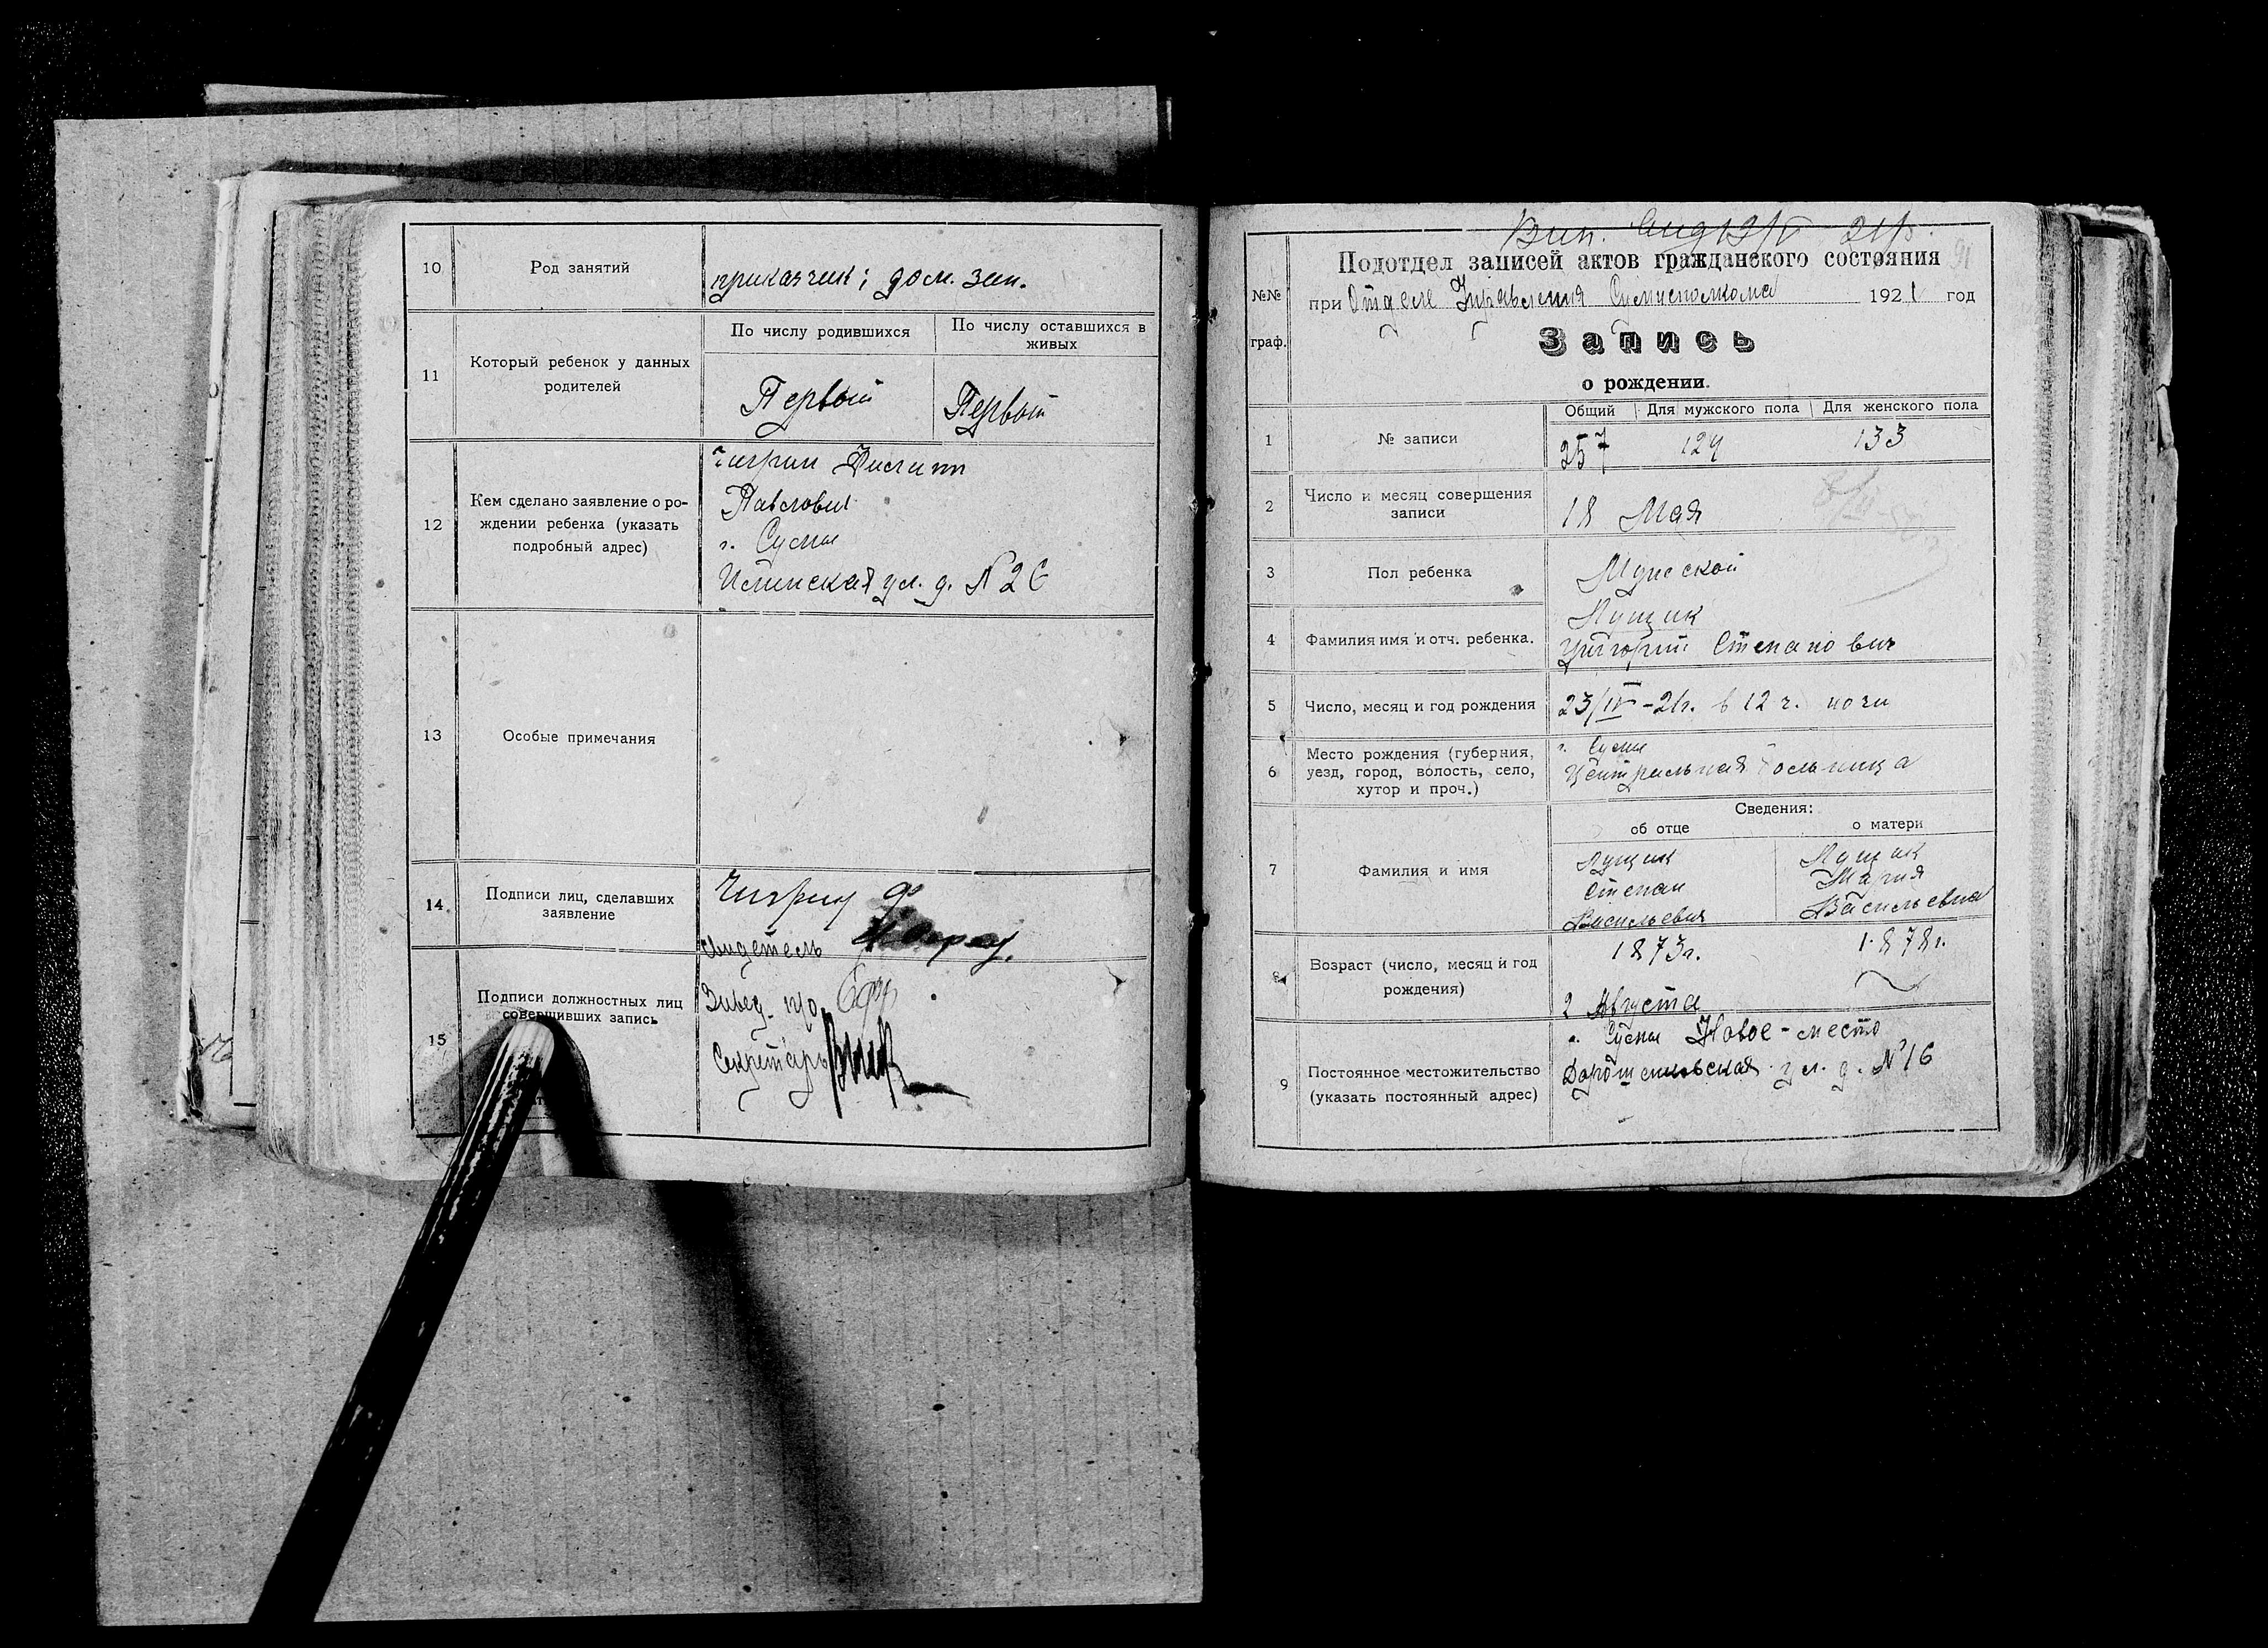 10
Род занятий
приказчик; дом. зан.
11
Который ребенок у данных
родителей
По числу родившихся
По числу оставшихся в
живых
Первый
Первый
12
Кем сделано заявление о ро-
ждении ребенка (указать
подробный адрес)
Чигрин Филипп
Павлович
г. Сумы
ул. д. N 26
13
Особые примечания
14
Подписи лиц, сделавших
заявление
Чигрин Ф
Свидетель
15
Подписи должностных лиц
совершивших запись
Завед. п/о
Секретарь
Подотдел записей актов гражданского состояния
91
при Отделе Управления Сумисполкома 1921 год
№№
граф.
Запись
о рождении.
Общий
Для мужского пола
Для женского пола
1
№ записи
257
124
133
2
Число и месяц совершения
записи
18 Мая
3
Пол ребенка
Мужской
4
Фамилия имя и отч. ребенка.
Лущик
Григорий Степанович
5
Число, месяц и год рождения
23/IV-21г. в 12 ч. ночи
6
Место рождения (губерния,
уезд, город, волость, село,
хутор и проч.)
г. Сумы
Центральная больница
Сведения:
об отце
о матери
7
Фамилия и имя
Лущик
Степан
Васильевич
Лущик
Мария
Васильевна
8
Возраст (число, месяц и год
рождения)
1873г.
2 Августа
1878г.
9
Постоянное местожительство
(указать постоянный адрес)
г. Сумы Новое-место
ул. д. № 16